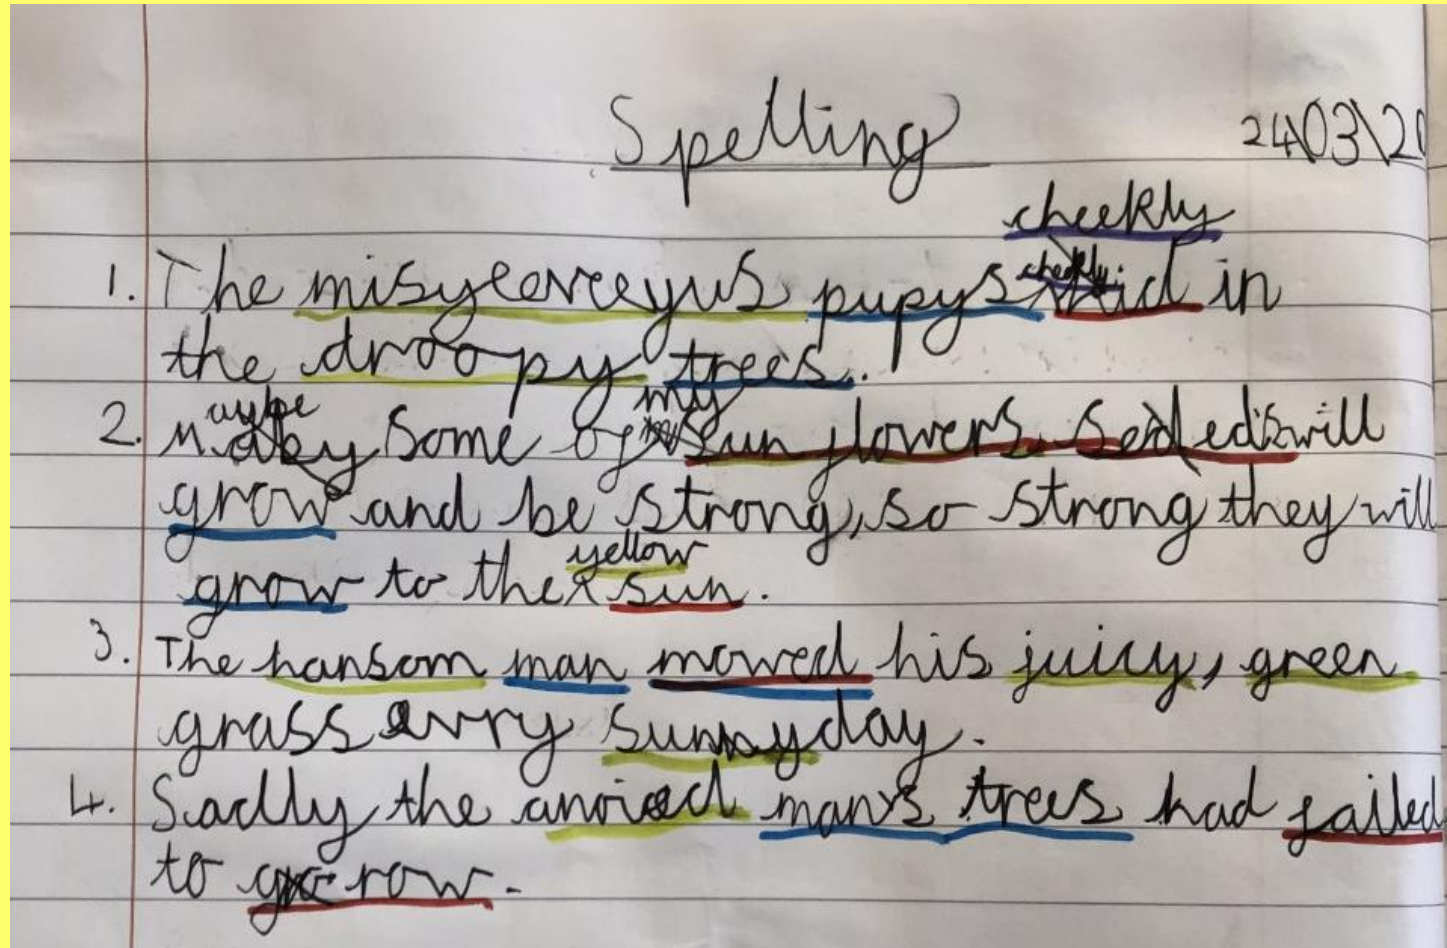 Spelling
24\03\20
cheekly
1. The misyeerceyus pupys hid in
the droopy trees.
2. Maybe some of my sun flowers seeds will
grow and be strong, so strong they will
grow to the yellow sun.
3. The hansom man mowed his juicy, green
grass evry sunny day.
4. Sadly the anoied man's trees had failed
to grow.